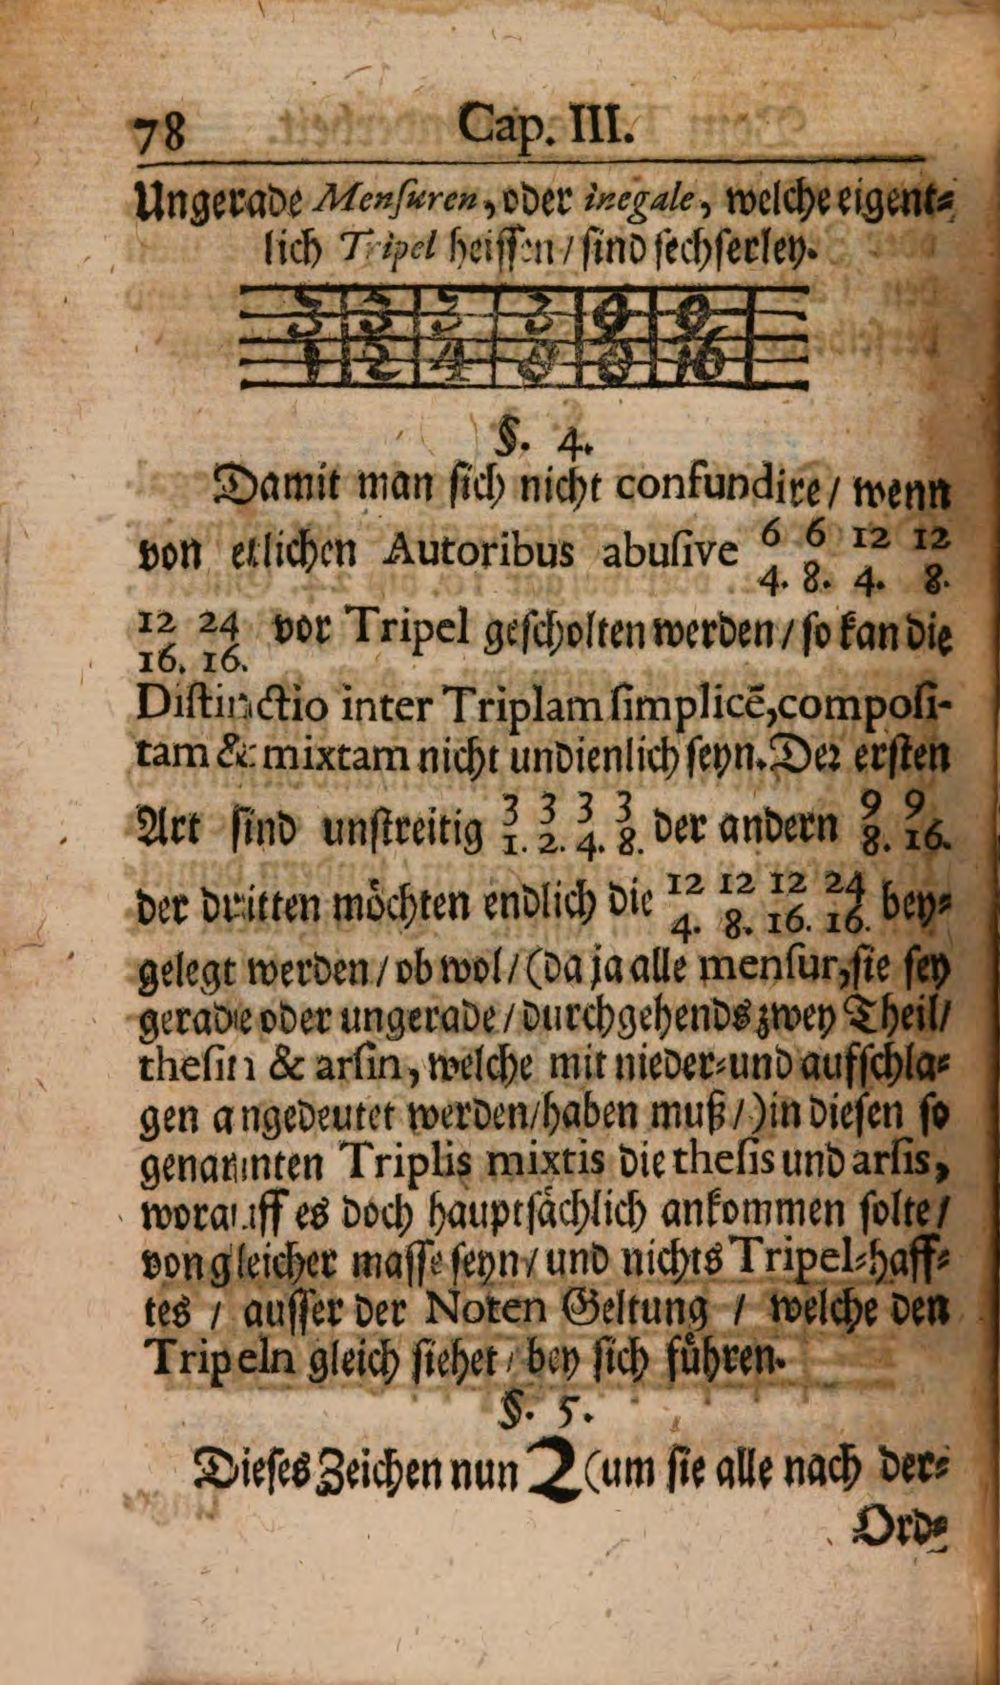 78 Cap. III.
Ungerade Menſuren, oder inegale, welche eigent⸗
lich Tripel heiſſen / ſind ſechſerley.
3 3 3 3 9 9
1 2 4 8 8 16
§. 4.
Damit man ſich nicht confundire / wenn
von etlichen Autoribus abuſive 6 6 12 12
4. 8. 4. 8.
12 24 vor Tripel geſcholten werden / ſo kan die
16. 16.
Diſtinctio inter Triplam ſimplicē, compoſi-
tam & mixtam nicht undienlich ſeyn. Der erſten
Art ſind unſtreitig 3 3 3 3 der andern 9 9
1. 2. 4. 8. 8. 16.
der dritten möchten endlich die 12 12 12 24 bey⸗
4. 8. 16. 16.
gelegt werden / ob wol / (da ja alle menſur, ſie ſey
gerade oder ungerade / durchgehends zwey Theil /
theſin & arſin, welche mit nieder⸗ und aufſchla⸗
gen angedeutet werden / haben muß /) in dieſen ſo
genannten Triplis mixtis die theſis und arſis,
worauff es doch hauptſächlich ankommen ſolte /
von gleicher maſſe ſeyn / und nichts Tripel⸗haff⸗
tes / auſſer der Noten Geltung / welche den
Tripeln gleich ſiehet / bey ſich führen.
§. 5.
Dieſes Zeichen nun 2 (um ſie alle nach der⸗
Ord⸗